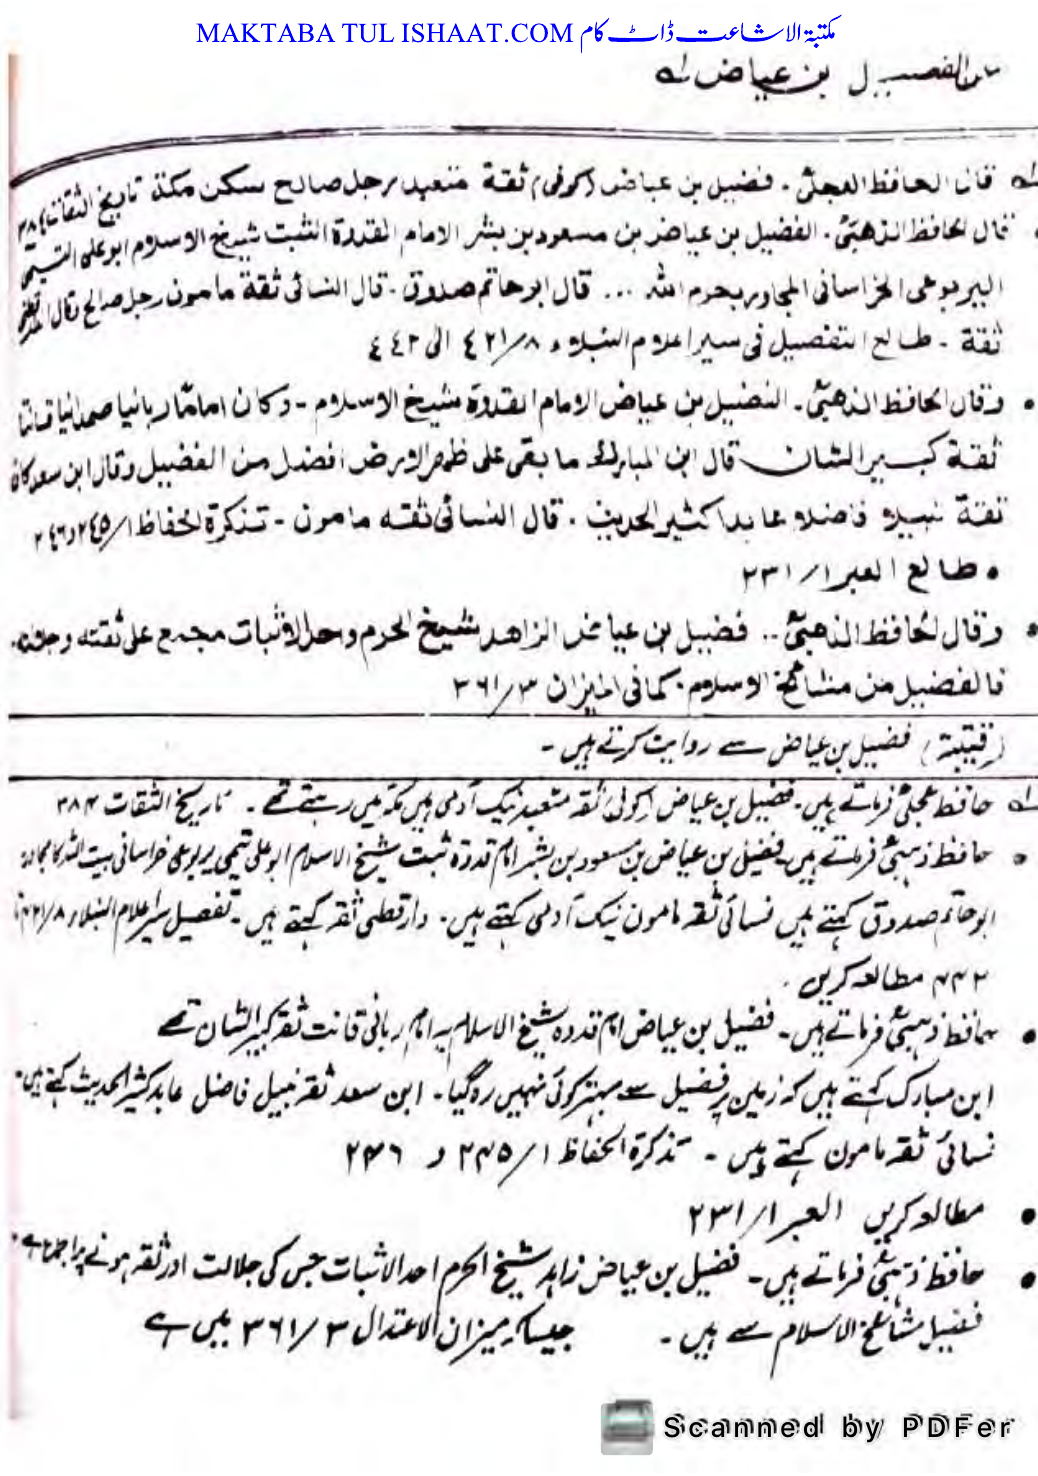 MAKTABA TUL ISHAAT.COM مکتبۃ الاشاعت ڈاٹ کام
عن الفضيل بن عياض ؂۱
؂۱ قال الحافظ العجلیؒ۔ فضيل بن عياض (کوفی) ثقة متعبد رجل صالح سكن مكة تاريخ الثقات ۳۸۴
قال الحافظ الذهبیؒ۔ الفضيل بن عياض بن مسعود بن بشر الامام القدوة الثبت شيخ الاسلام ابو علی التميمی
اليربوعی الخراسانی المجاور بحرم الله ... قال ابو حاتم صدوق۔ قال النسائی ثقة مامون رجل صالح وقال الدارقطنی
ثقة۔ طالع التفصيل فی سير اعلام النبلاء ۸/٤٢١ الی ٤٤٢
• وقال الحافظ الذهبیؒ۔ الفضيل بن عياض الامام القدوة شيخ الاسلام۔ وكان اماما ربانيا صمدانيا قانتا
ثقة كبير الشان قال ابن المبارك ما بقی علی ظهر الارض افضل من الفضيل وقال ابن سعد كان
ثقة نبيلا فاضلا عابدا كثير الحديث۔ قال النسائی ثقه مامون۔ تذكرة الحفاظ ۱/٢٤٥ و ٢٤٦
• طالع العبر ۱/۲۳۱
• وقال الحافظ الذهبیؒ.. فضيل بن عياض الزاهد شيخ الحرم واحد الاثبات مجمع علی ثقته وجلالته
فالفضيل من مشائخ الاسلام۔ كما فی الميزان ۳/۳۶۱
(قتيبة) فضیل بن عیاض سے روایت کرتے ہیں۔
؂۱ حافظ عجلیؒ فرماتے ہیں۔ فضیل بن عیاض (کوفی) ثقہ متعبد نیک آدمی ہیں مکہ میں رہتے تھے۔ تاریخ الثقات ۳۸۴
• حافظ ذہبیؒ فرماتے ہیں۔ فضیل بن عیاض بن مسعود بن بشر امام قدوہ ثبت شیخ الاسلام ابو علی تمیمی یربوعی خراسانی بیت اللہ کا مجاور
ابو حاتم صدوق کہتے ہیں نسائیؒ ثقہ مامون نیک آدمی کہتے ہیں۔ دارقطنی ثقہ کہتے ہیں۔ تفصیل سیر اعلام النبلاء ۸/۴۲۱ تا
۴۴۲ مطالعہ کریں۔
• حافظ ذہبیؒ فرماتے ہیں۔ فضیل بن عیاض امام قدوہ شیخ الاسلام یہ امام ربانی قانت ثقہ کبیر الشان تھے
ابن مبارک کہتے ہیں کہ زمین پر فضیل سے بہتر کوئی نہیں رہ گیا۔ ابن سعد ثقہ نبیل فاضل عابد کثیر الحدیث کہتے ہیں۔
نسائیؒ ثقہ مامون کہتے ہیں۔ تذکرۃ الحفاظ ۱/۲۴۵ و ۲۴۶
• مطالعہ کریں العبر ۱/۲۳۱
• حافظ ذہبیؒ فرماتے ہیں۔ فضیل بن عیاض زاہد شیخ الحرم احد الاثبات جس کی جلالت اور ثقہ ہونے پر اجماع ہے۔
فضیل مشائخ الاسلام سے ہیں۔ جیسا کہ میزان الاعتدال ۳/۳۶۱ میں ہے
Scanned by PDFer